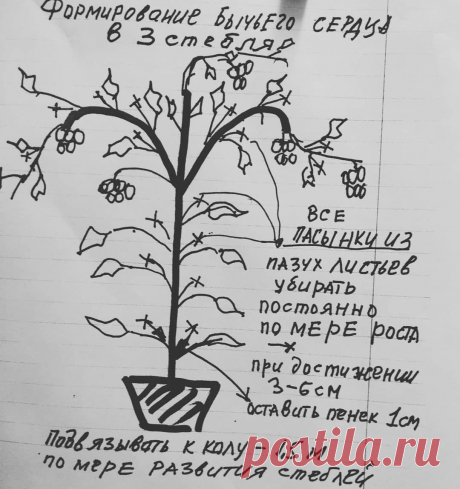 Формирование Бычьего сердца
в 3 стебля
ВСЕ
ПАСЫНКИ ИЗ
ПАЗУХ ЛИСТЬЕВ
УБИРАТЬ
ПОСТОЯННО
ПО МЕРЕ РОСТА
ПРИ ДОСТИЖЕНИИ
3-6 см
ОСТАВИТЬ ПЕНЕК 1см
Подвязывать к колу -
по мере развития стеблей
postila.ru